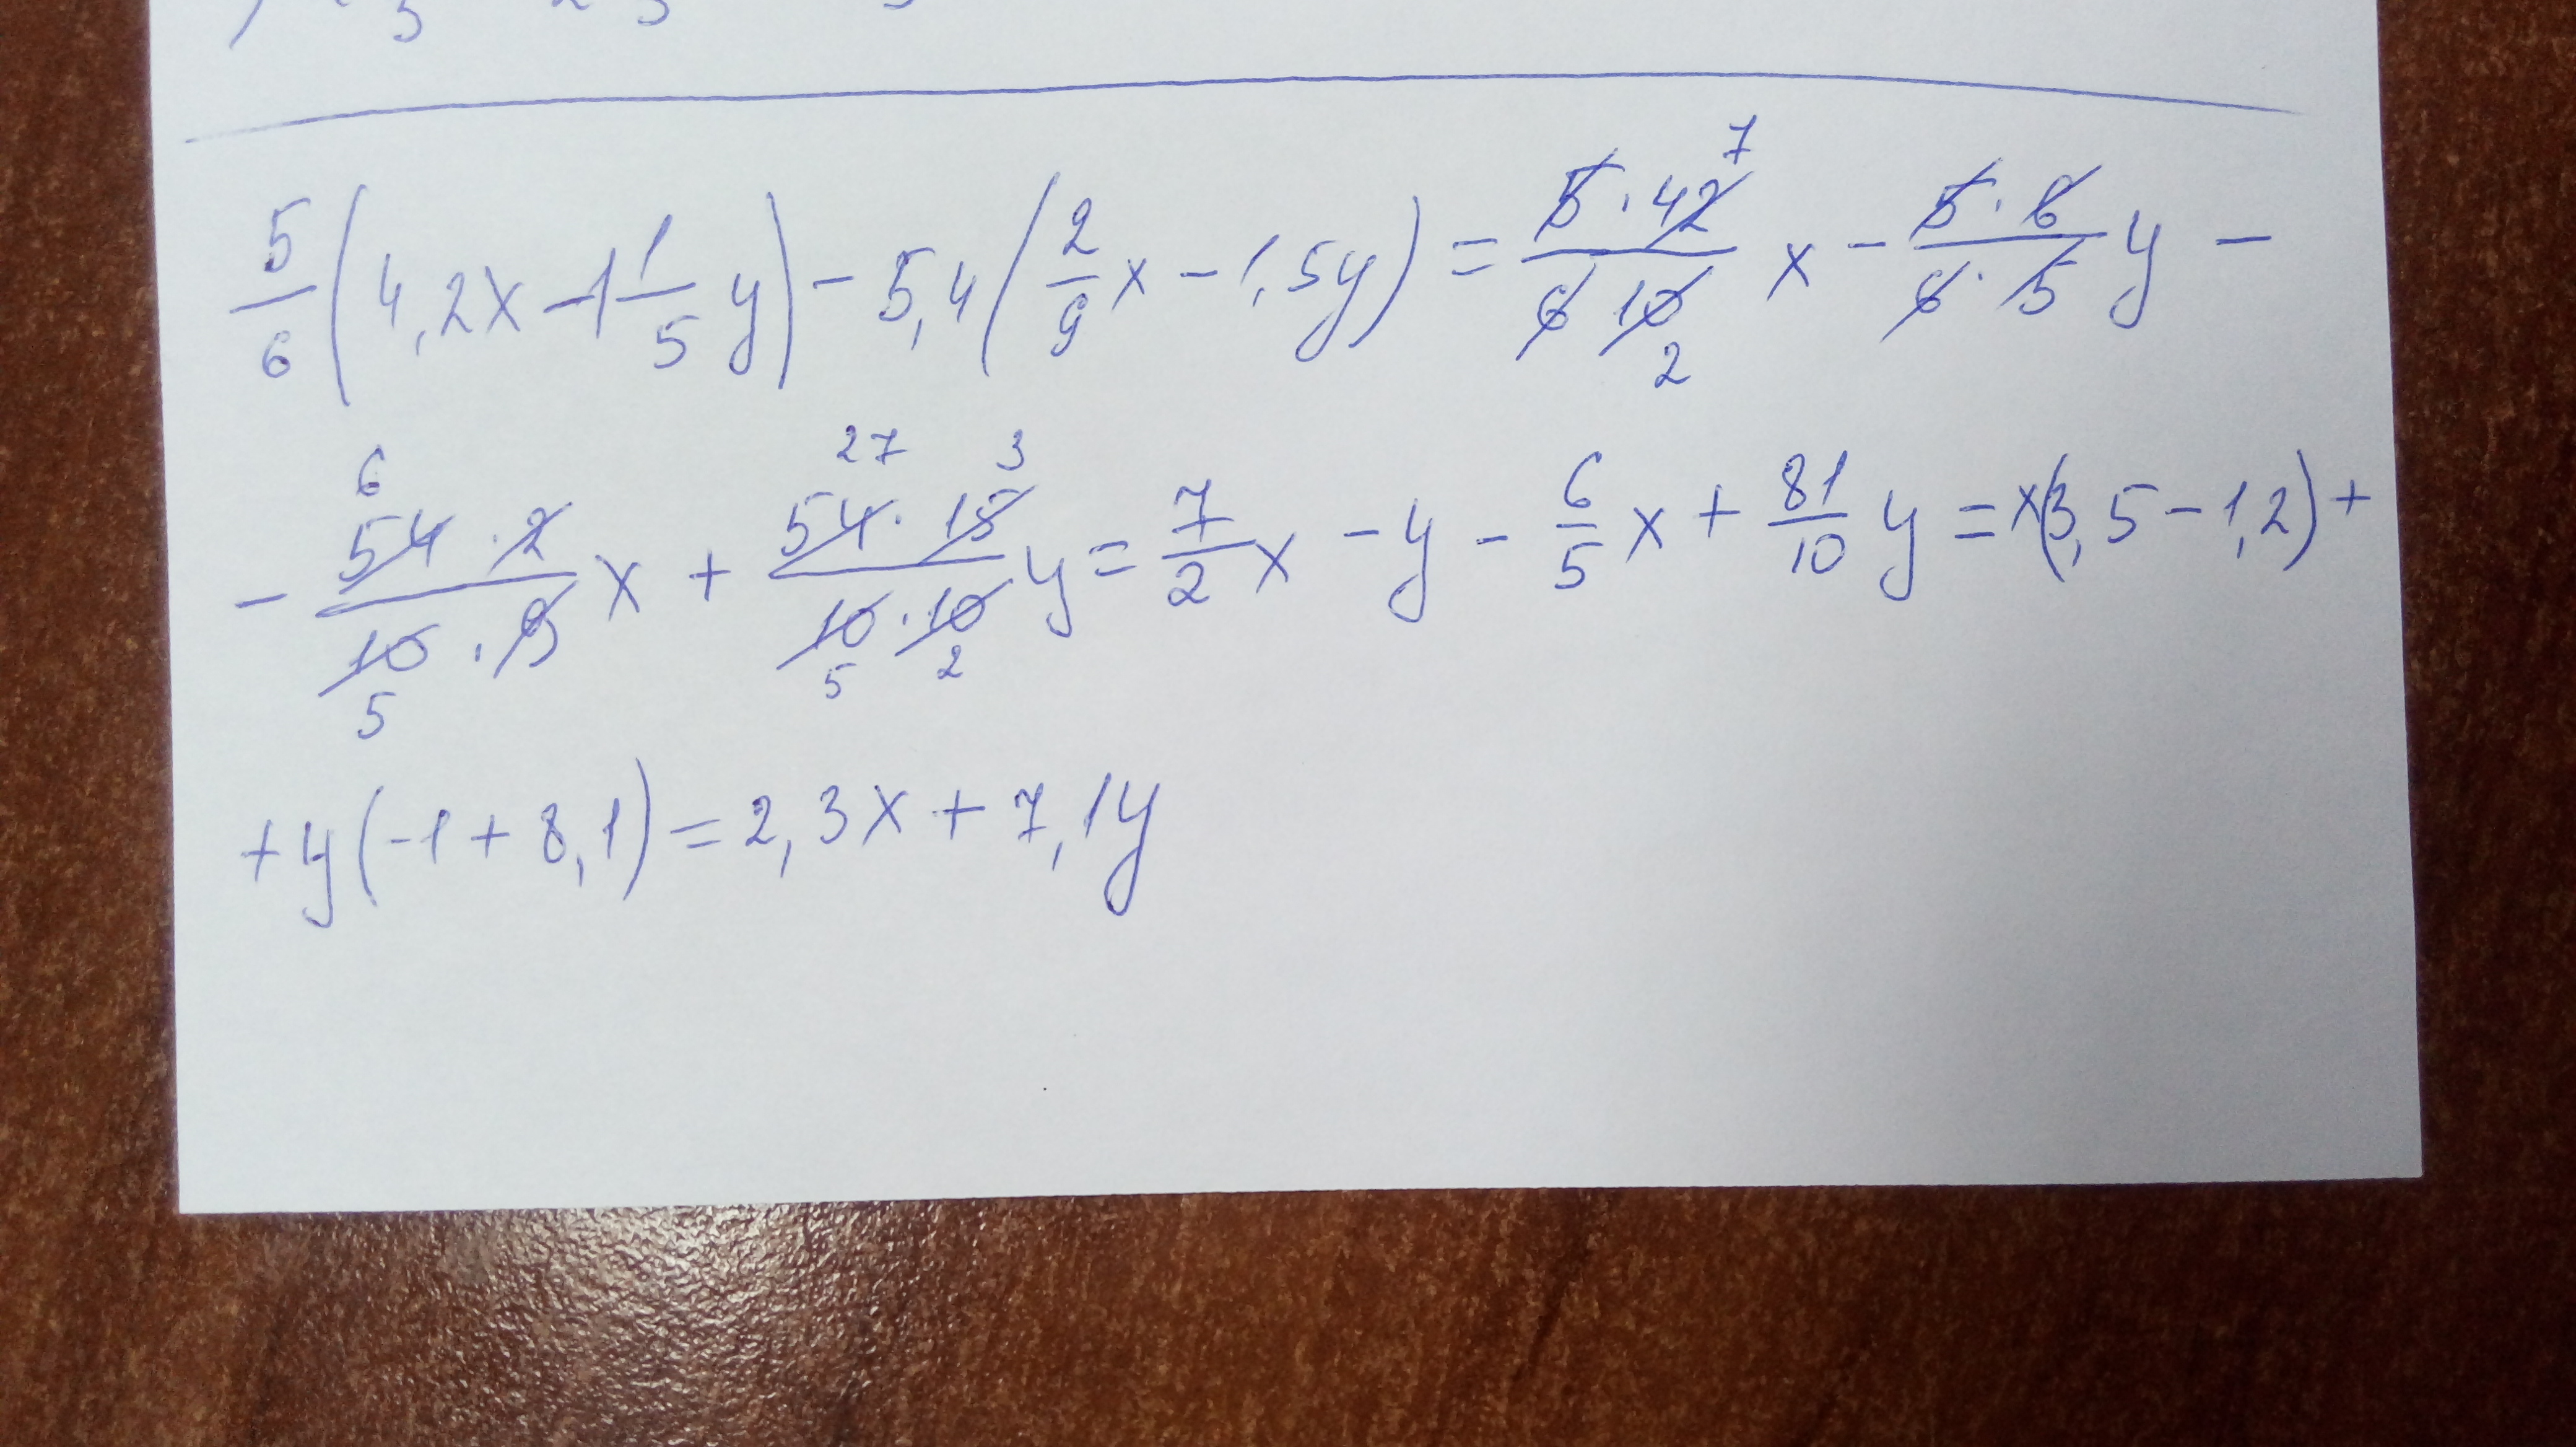 5/6 (4,2x - 1 1/5 y) - 5,4 (2/9 x - 1,5y) = (5 · 42)/(6 10) x - (5 · 6)/(6 · 5) y -
7
2
6 27 3
- (54 · 2)/(10 · 9) x + (54 · 15)/(10 · 10) y = 7/2 x - y - 6/5 x + 81/10 y = x(3,5 - 1,2) +
5 5 2
+ y(-1 + 8,1) = 2,3x + 7,1y